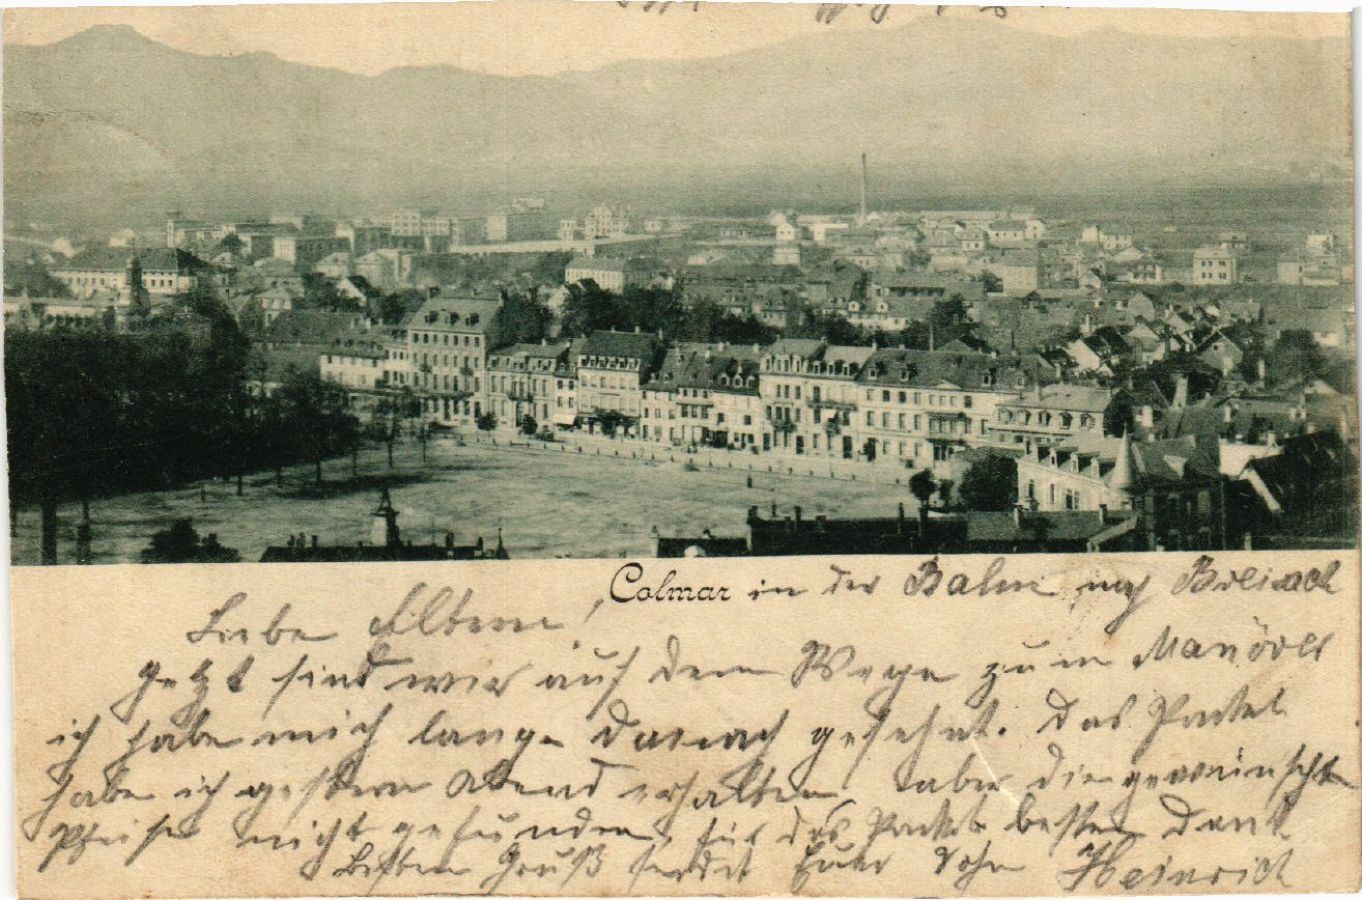 Colmar in der Bahn nach Breisach
Liebe Eltern!
Jetzt sind wir auf dem Wege zum Manöver
ich habe mich lange danach gesehnt. Das Packet
habe ich gestern Abend erhalten, aber die gewünschte
Pfeife nicht gefunden, für das Packet besten Dank
Besten Gruß sendet Euer Sohn Heinrich